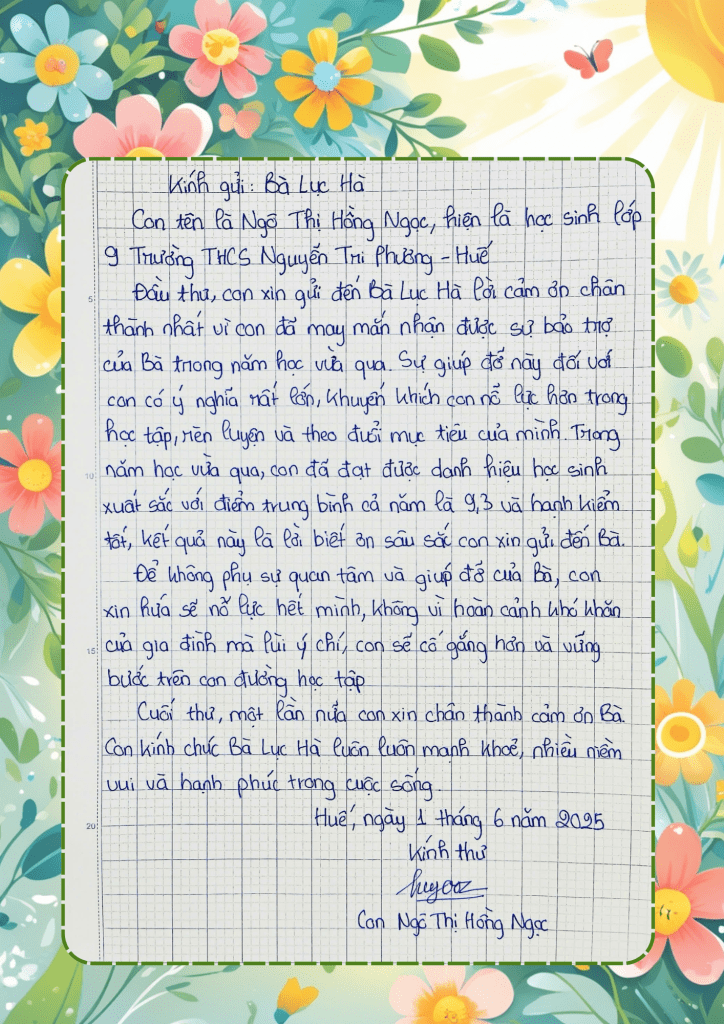 Kính gửi: Bà Lục Hà
Con tên là Ngô Thị Hồng Ngọc, hiện là học sinh lớp
9 Trường THCS Nguyễn Tri Phương - Huế
5
Đầu thư, con xin gửi đến Bà Lục Hà lời cảm ơn chân
thành nhất vì con đã may mắn nhận được sự bảo trợ
của Bà trong năm học vừa qua. Sự giúp đỡ này đối với
con có ý nghĩa rất lớn, khuyến khích con nỗ lực hơn trong
học tập, rèn luyện và theo đuổi mục tiêu của mình. Trong
10
năm học vừa qua, con đã đạt được danh hiệu học sinh
xuất sắc với điểm trung bình cả năm là 9,3 và hạnh kiểm
tốt, kết quả này là lời biết ơn sâu sắc con xin gửi đến Bà.
Để không phụ sự quan tâm và giúp đỡ của Bà, con
xin hứa sẽ nỗ lực hết mình, không vì hoàn cảnh khó khăn
15
của gia đình mà lùi ý chí, con sẽ cố gắng hơn và vững
bước trên con đường học tập
Cuối thư, một lần nữa con xin chân thành cảm ơn Bà.
Con kính chúc Bà Lục Hà luôn luôn mạnh khoẻ, nhiều niềm
vui và hạnh phúc trong cuộc sống.
20
Huế, ngày 1 tháng 6 năm 2025
Kính thư
Con Ngô Thị Hồng Ngọc